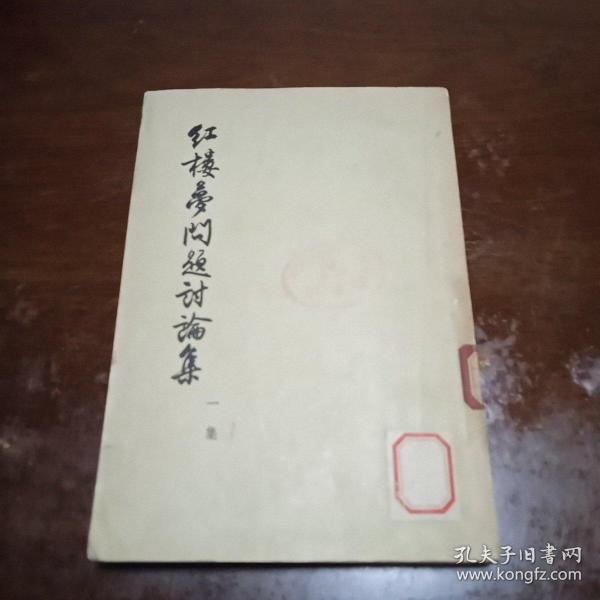 红楼夢問题討論集
一集
孔夫子旧書网
www.kongfz.com